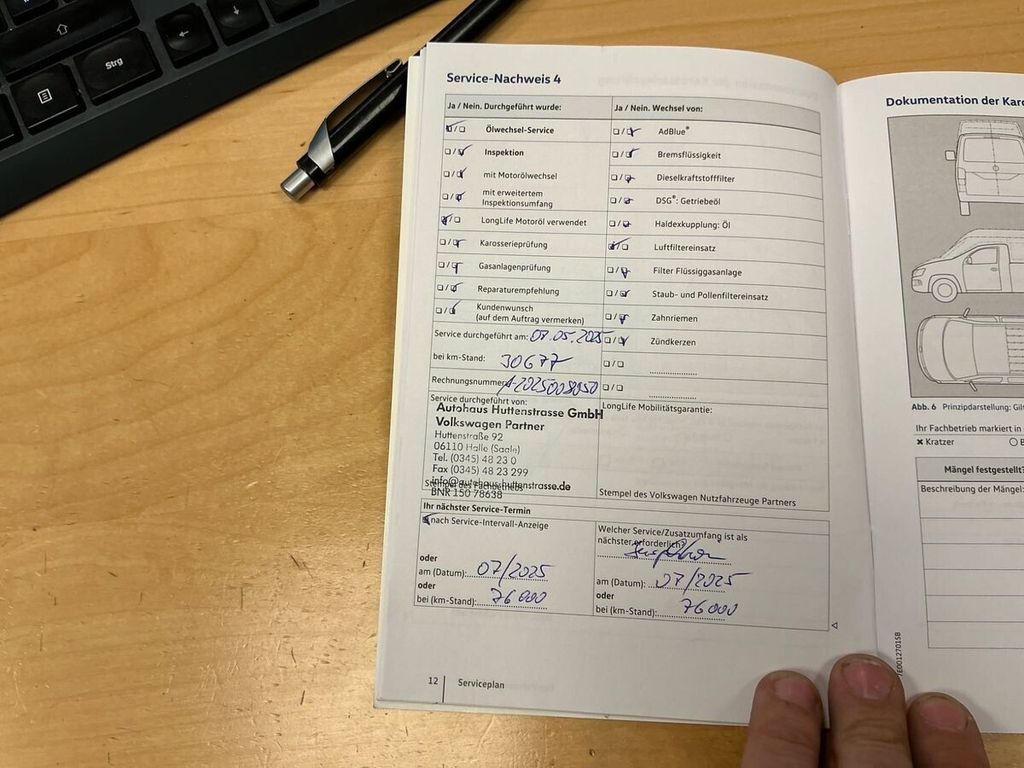 Strg
Service-Nachweis 4
Ja / Nein. Durchgeführt wurde:
Ölwechsel-Service
Inspektion
mit Motorölwechsel
mit erweitertem
Inspektionsumfang
LongLife Motoröl verwendet
Karosserieprüfung
Gasanlagenprüfung
Reparaturempfehlung
Kundenwunsch
(auf dem Auftrag vermerken)
Ja / Nein. Wechsel von:
AdBlue®
Bremsflüssigkeit
Dieselkraftstofffilter
DSG®: Getriebeöl
Haldexkupplung: Öl
Luftfiltereinsatz
Filter Flüssiggasanlage
Staub- und Pollenfiltereinsatz
Zahnriemen
Zündkerzen
Service durchgeführt am: 07.05.2025
bei km-Stand: 30677
Rechnungsnummer: A-2025008050
Service durchgeführt von:
Autohaus Huttenstrasse GmbH
Volkswagen Partner
Huttenstraße 92
06110 Halle (Saale)
Tel. (0345) 48 23 0
Fax (0345) 48 23 299
info@autohaus-huttenstrasse.de
Stempel des Fachbetriebs
BNR 150 78638
LongLife Mobilitätsgarantie:
Stempel des Volkswagen Nutzfahrzeuge Partners
Ihr nächster Service-Termin
nach Service-Intervall-Anzeige
oder
am (Datum): 07/2025
oder
bei (km-Stand): 76000
Welcher Service/Zusatzumfang ist als
nächster erforderlich?
Inspektion
am (Datum): 07/2025
oder
bei (km-Stand): 76000
12 Serviceplan
Dokumentation der Karo
Abb. 6 Prinzipdarstellung:
Ihr Fachbetrieb markiert in
Kratzer
Mängel festgestellt?
Beschreibung der Mängel:
7E0012701SB